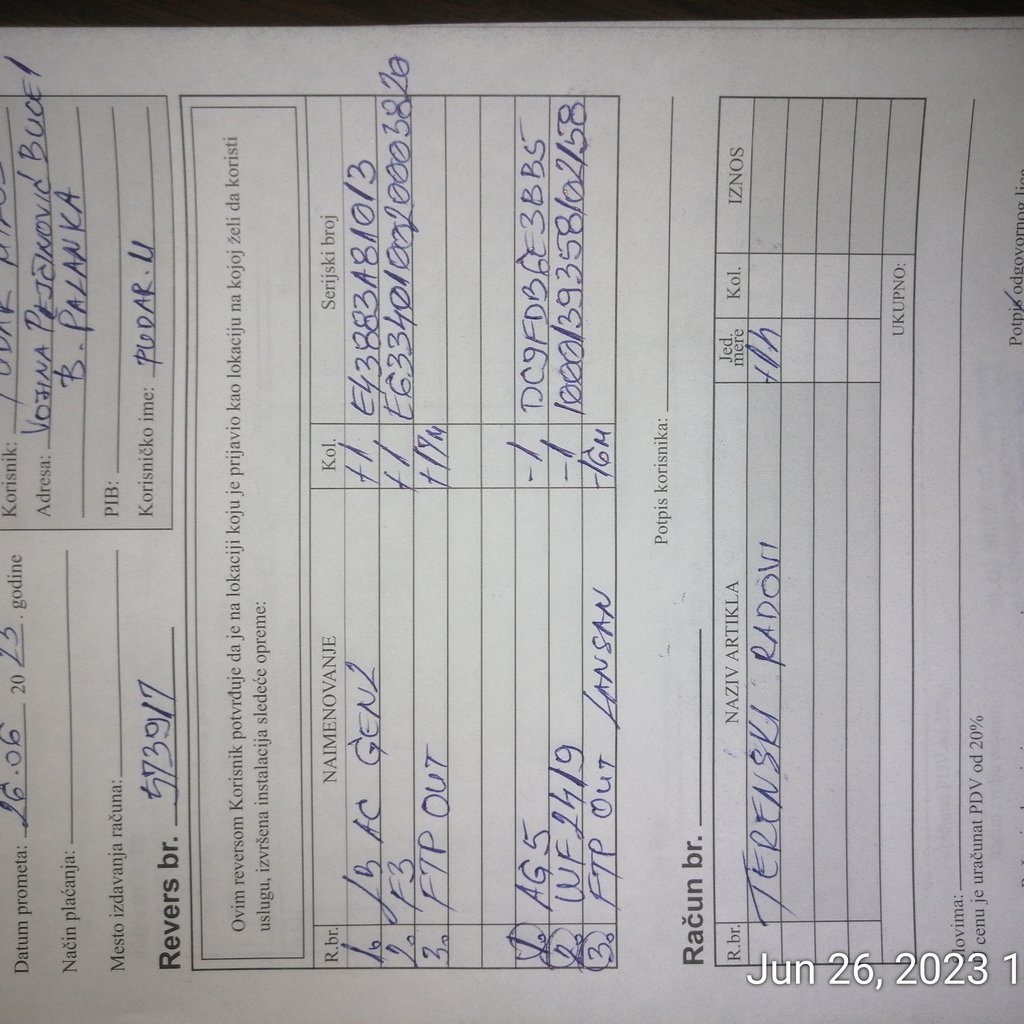 Datum prometa: 26.06 2023. godine
Način plaćanja:
Mesto izdavanja računa:
Korisnik:
Adresa: VOJINA PEJČINOVIĆ BUCE 1
B. PALANKA
PIB:
Korisničko ime: PUDAR.M
Revers br. 5739/7
Ovim reversom Korisnik potvrđuje da je na lokaciji koju je prijavio kao lokaciju na kojoj želi da koristi
uslugu, izvršena instalacija sledeće opreme:
R.br. NAIMENOVANJE Kol. Serijski broj
1. LB AC GEN2 +1 E43883A81013
2. F3 +1 EG334010020003820
3. FTP OUT +17M
1. AG5 -1 DC9FDB6E3BB5
2. WF2419 -1 1000139358102158
3. FTP OUT LANSAN -16M
Potpis korisnika:
Račun br.
R.br. NAZIV ARTIKLA Jed. mere Kol. IZNOS
TERENSKI RADOVI +1h
UKUPNO:
Slovima:
U cenu je uračunat PDV od 20%
Potpis odgovornog lica
Jun 26, 2023 1